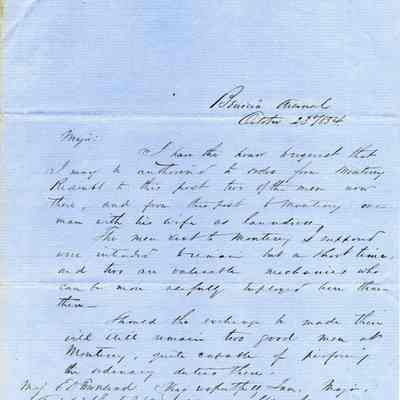 Benicia Arsenal
October 23rd 1854
Major:
I have the honor to request that
I may be authorized to order from Monterey
Redoubt to this post two of the men now
there, and from this post to Monterey one
man with his wife as laundress.
The men sent to Monterey I supposed
were intended to remain but a short time,
and two are valuable mechanics who
can be more usefully employed here than
there—
Should the exchange be made there
will still remain two good men at
Monterey, quite capable of performing
the ordinary duties there.
Maj. E. D. Townsend Very respectfully